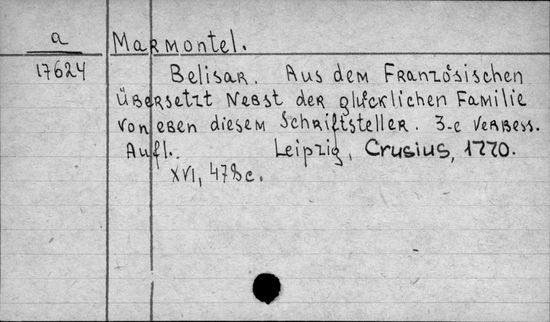 a
Marmontel.
17624
Belisar. Aus dem Französischen
übersetzt Nebst der glücklichen Familie
von eben diesem Schriftsteller. 3-e verbess.
Aufl. Leipzig, Crusius, 1770.
XVI, 478c.